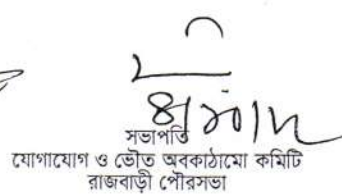 সভাপতি
যোগাযোগ ও ভৌত অবকাঠামো কমিটি
রাজবাড়ী পৌরসভা